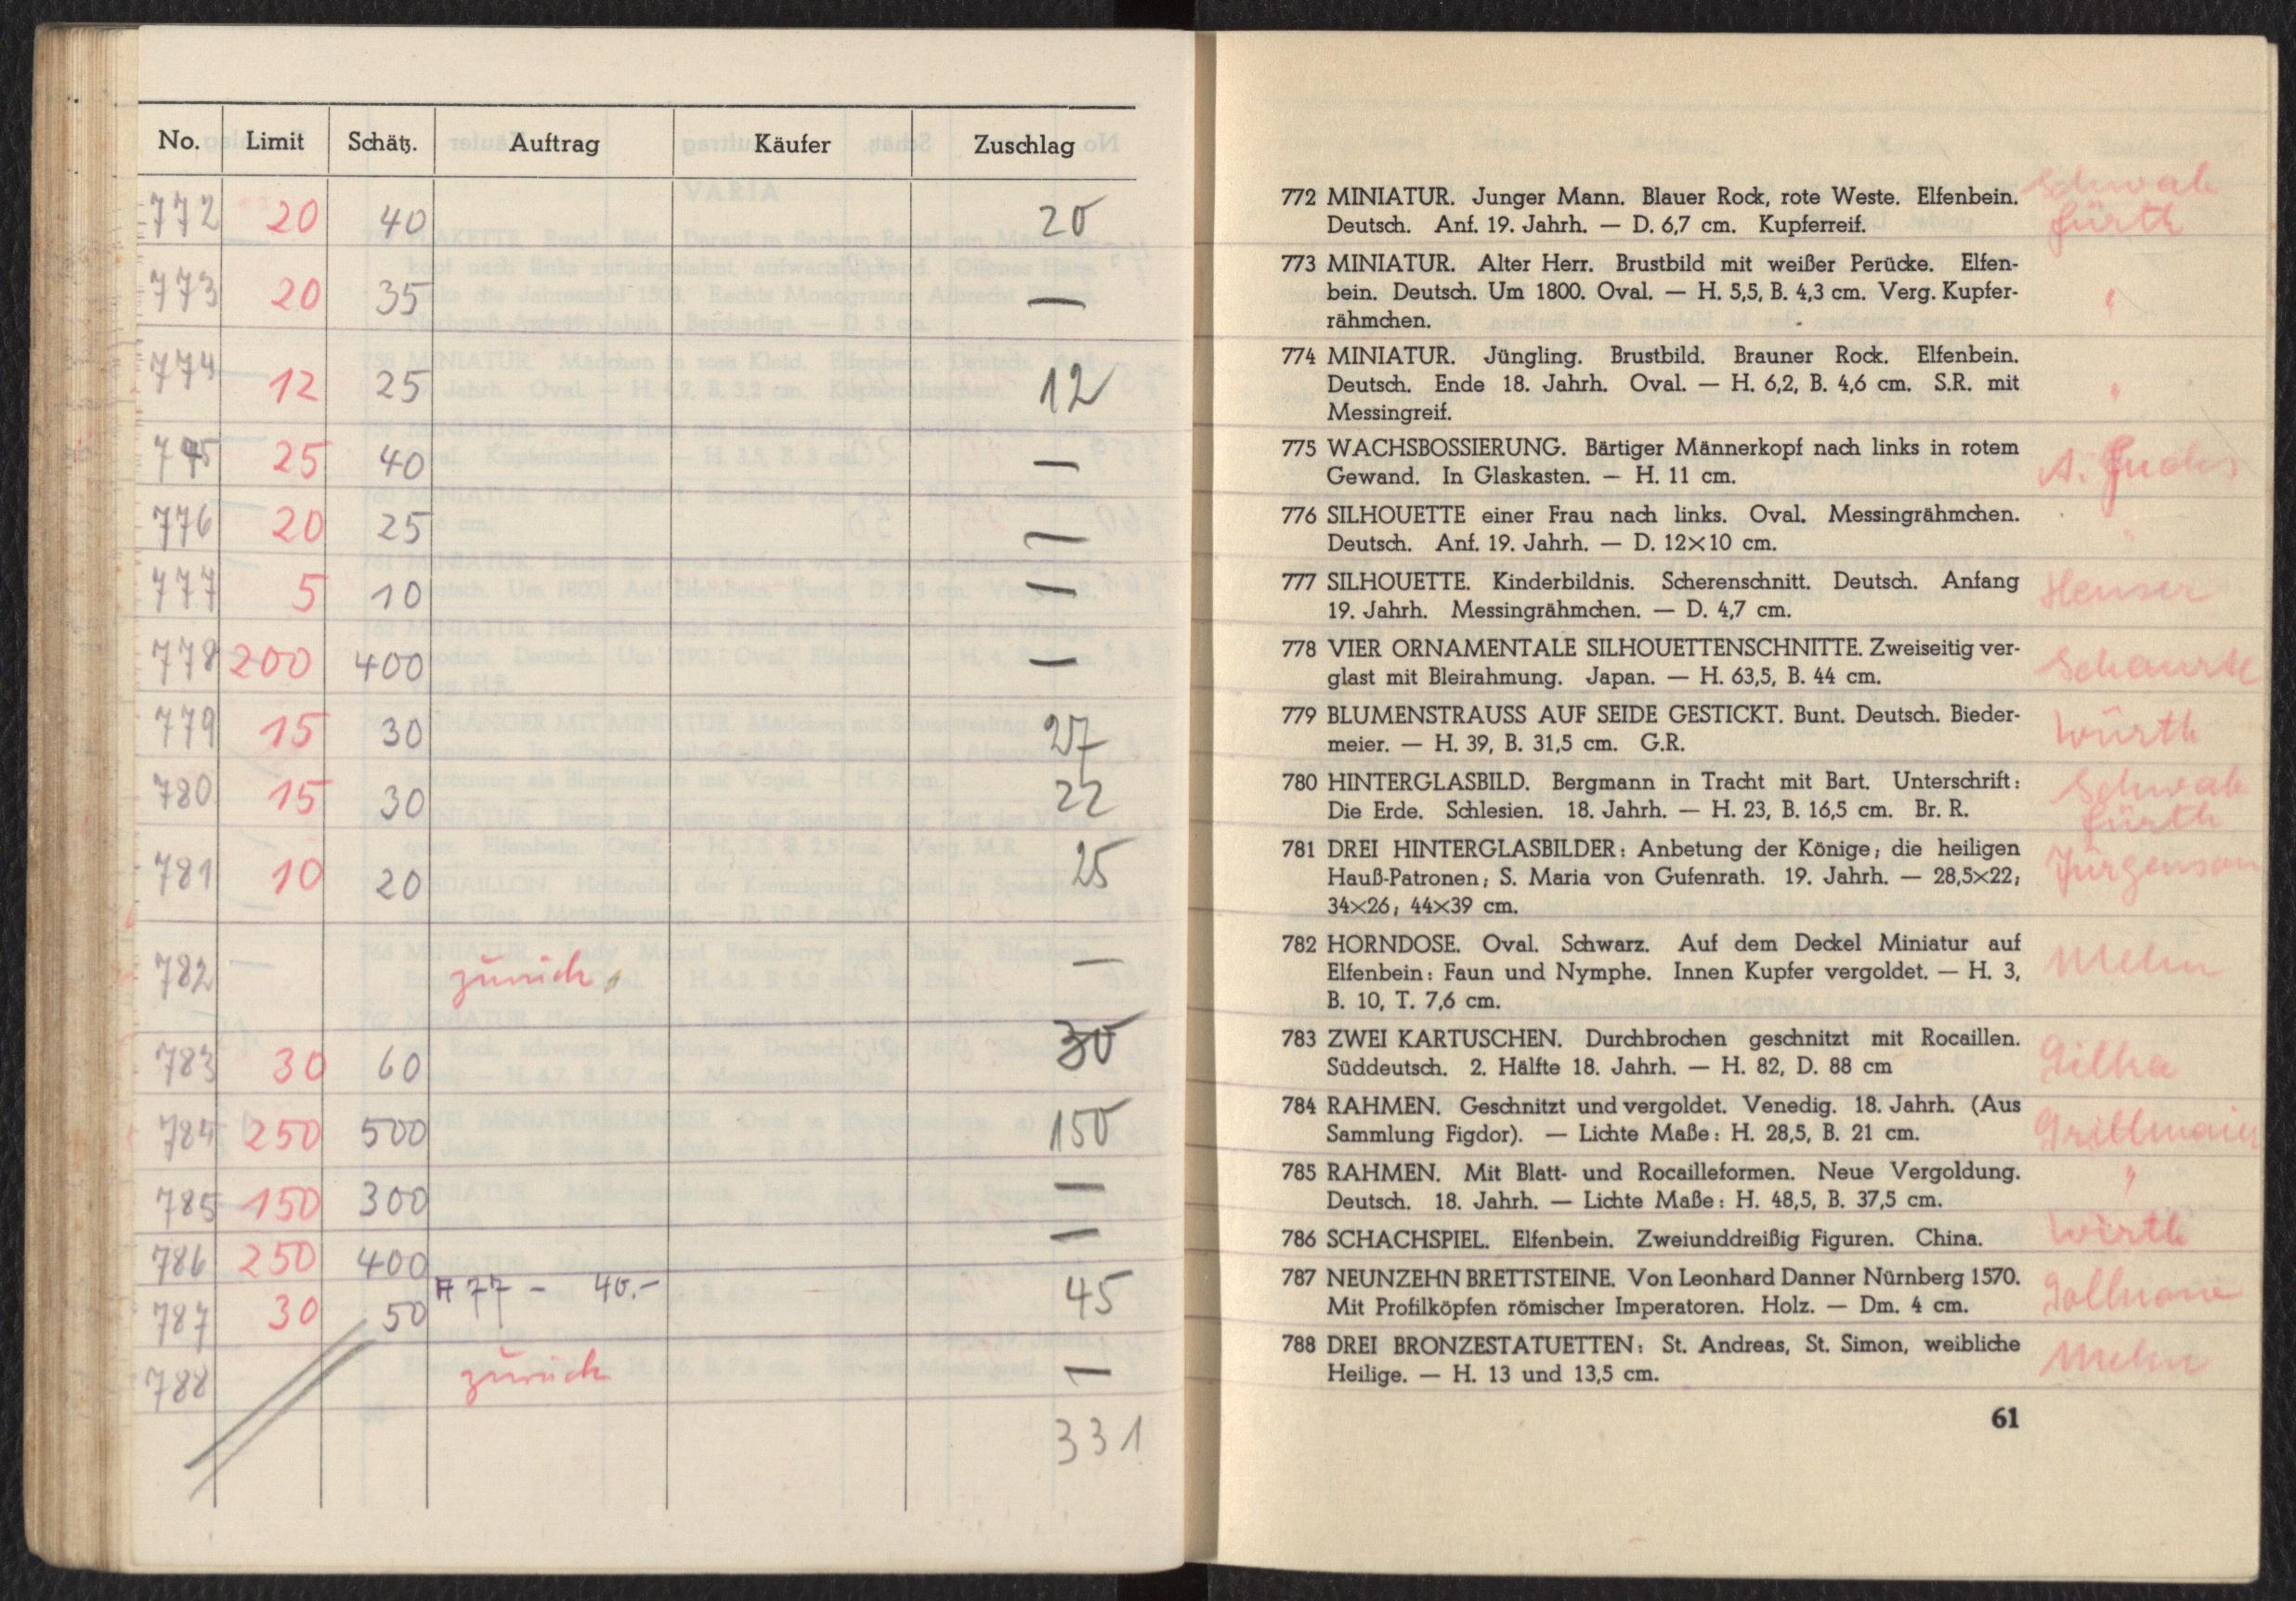 No. Limit Schätz. Auftrag Käufer Zuschlag
772 20 40 20
773 20 35 —
774 12 25 12
775 25 40 —
776 20 25 —
777 5 10 —
778 200 400 —
779 15 30 27
780 15 30 22
781 10 20 25
782 zurück —
783 30 60 30
784 250 500 150
785 150 300 —
786 250 400 —
787 30 50 A 77 - 40.- 45
788 zurück —
331
772 MINIATUR. Junger Mann. Blauer Rock, rote Weste. Elfenbein. Schwab
Deutsch. Anf. 19. Jahrh. — D. 6,7 cm. Kupferreif. Fürth
773 MINIATUR. Alter Herr. Brustbild mit weißer Perücke. Elfen-
bein. Deutsch. Um 1800. Oval. — H. 5,5, B. 4,3 cm. Verg. Kupfer- "
rähmchen.
774 MINIATUR. Jüngling. Brustbild. Brauner Rock. Elfenbein.
Deutsch. Ende 18. Jahrh. Oval. — H. 6,2, B. 4,6 cm. S.R. mit "
Messingreif.
775 WACHSBOSSIERUNG. Bärtiger Männerkopf nach links in rotem
Gewand. In Glaskasten. — H. 11 cm. A. Fuchs
776 SILHOUETTE einer Frau nach links. Oval. Messingrähmchen.
Deutsch. Anf. 19. Jahrh. — D. 12×10 cm. "
777 SILHOUETTE. Kinderbildnis. Scherenschnitt. Deutsch. Anfang
19. Jahrh. Messingrähmchen. — D. 4,7 cm.
778 VIER ORNAMENTALE SILHOUETTENSCHNITTE. Zweiseitig ver-
glast mit Bleirahmung. Japan. — H. 63,5, B. 44 cm.
779 BLUMENSTRAUSS AUF SEIDE GESTICKT. Bunt. Deutsch. Bieder-
meier. — H. 39, B. 31,5 cm. G.R.
780 HINTERGLASBILD. Bergmann in Tracht mit Bart. Unterschrift: Schwab
Die Erde. Schlesien. 18. Jahrh. — H. 23, B. 16,5 cm. Br. R. Fürth
781 DREI HINTERGLASBILDER: Anbetung der Könige; die heiligen
Hauß-Patronen; S. Maria von Gufenrath. 19. Jahrh. — 28,5×22; Jürgenson
34×26; 44×39 cm.
782 HORNDOSE. Oval. Schwarz. Auf dem Deckel Miniatur auf
Elfenbein: Faun und Nymphe. Innen Kupfer vergoldet. — H. 3,
B. 10, T. 7,6 cm.
783 ZWEI KARTUSCHEN. Durchbrochen geschnitzt mit Rocaillen.
Süddeutsch. 2. Hälfte 18. Jahrh. — H. 82, D. 88 cm Gilka
784 RAHMEN. Geschnitzt und vergoldet. Venedig. 18. Jahrh. (Aus
Sammlung Figdor). — Lichte Maße: H. 28,5, B. 21 cm.
785 RAHMEN. Mit Blatt- und Rocailleformen. Neue Vergoldung. "
Deutsch. 18. Jahrh. — Lichte Maße: H. 48,5, B. 37,5 cm.
786 SCHACHSPIEL. Elfenbein. Zweiunddreißig Figuren. China.
787 NEUNZEHN BRETTSTEINE. Von Leonhard Danner Nürnberg 1570.
Mit Profilköpfen römischer Imperatoren. Holz. — Dm. 4 cm.
788 DREI BRONZESTATUETTEN: St. Andreas, St. Simon, weibliche
Heilige. — H. 13 und 13,5 cm.
61